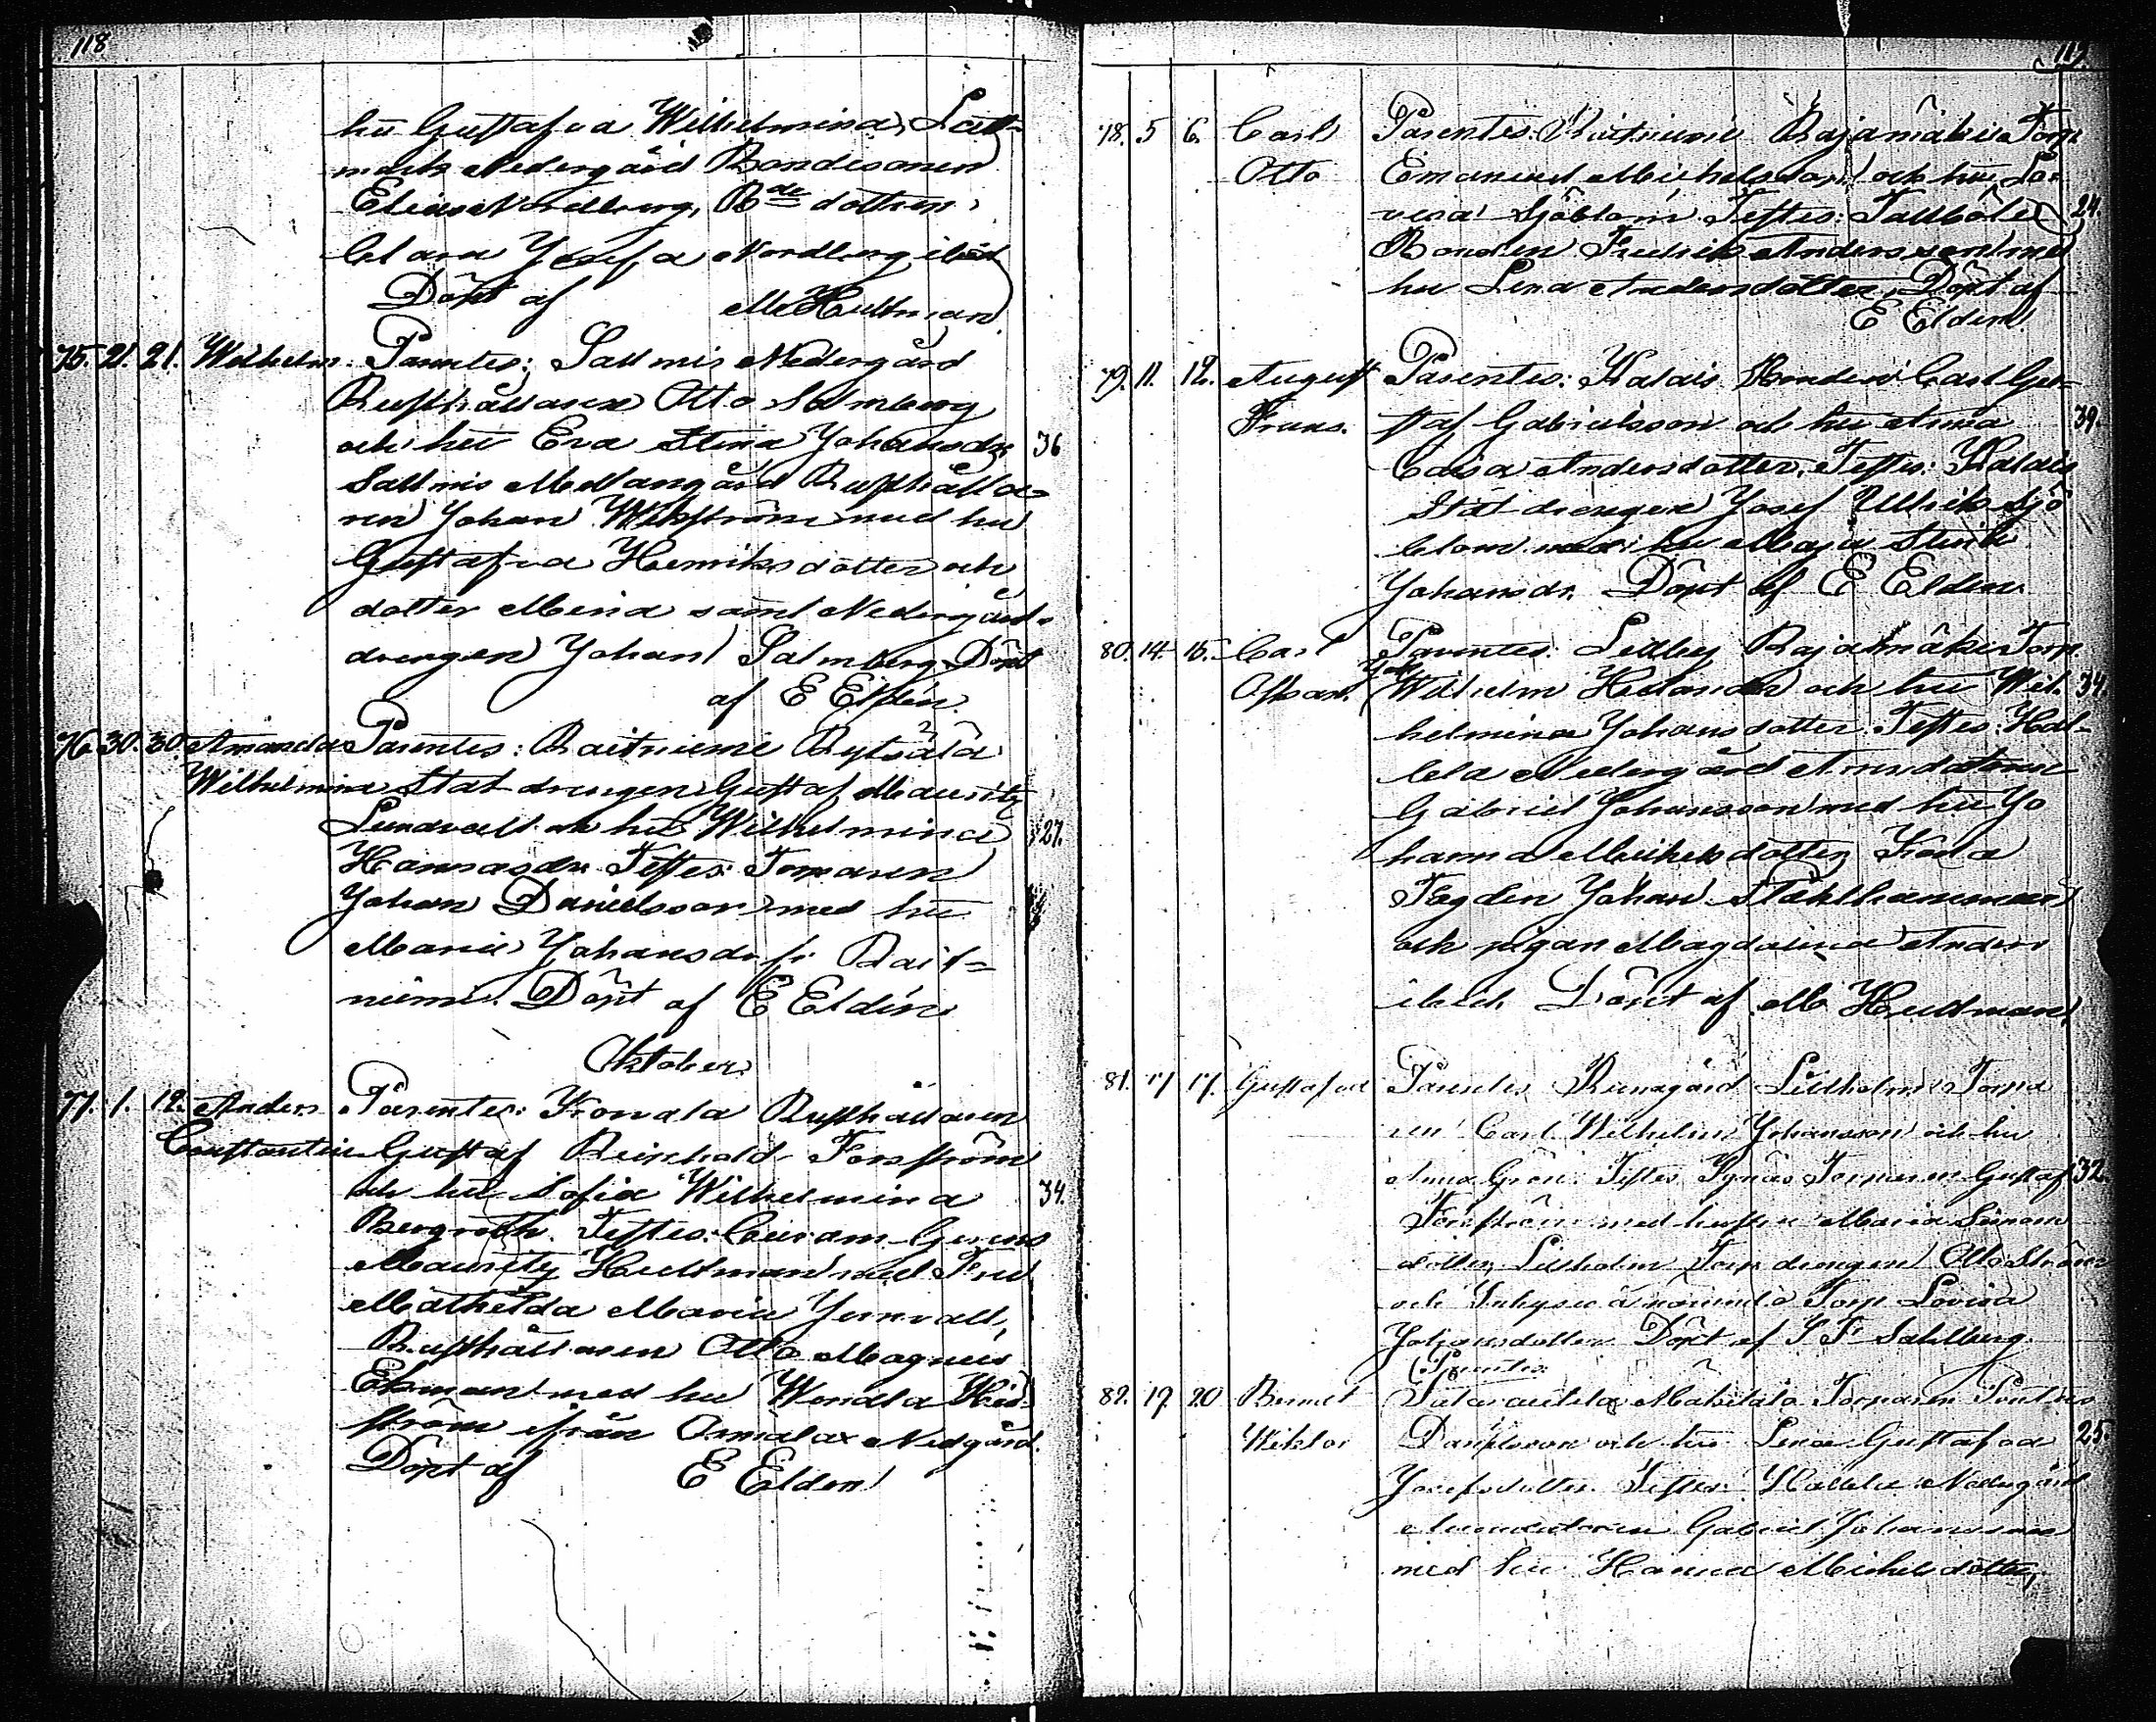 118
hu Gustafva Wilhelmina, Latt-
mark Nedergård Bondesonen
Elias Nordberg, Bde dottren
Clara Josefa Nordberg ibid
Döpt af M Hultman
75. 21. 21. Wilhelm Parentes: Sallmis Nedergård
Rusthållaren Otto Salmberg
och hu Eva Stina Johansdr 36
Sallmis Mellangård Rusthålla-
ren Johan Wikström med hu
Gustafva Henriksdotter och
dotter Mina samt Nedergård-
drengen Johan Salmberg Döpt
af E Eldén
76. 30. 30. Amanda Parentes: Raitniemi Rytsälä
Wilhelmina Statdrengen Gustaf Mauritz
Lundvall och hu Wilhelmina 27.
Hannasdr Testes: Torparen
Johan Danielsson med hu
Maria Johansdr fr. Rait-
niemi. Döpt af E Eldén
Oktober
77. 1. 12. Anders Parentes: Konala Rusthållaren
Constantin Gustaf Reinhold Forsström
och hu Sofia Wilhelmina 34.
Bergroth. Testes:
Mauritz Hultman med Fru
Mathilda Maria Jernvall,
Rusthållaren Otto Magnus
Ekman med hu Wendla Hed-
ström ifrån Nedgård.
Döpt af E Eldén
119.
78. 5 6. Carl Parentes: Raitniemi Rajamäki Torp.
Otto Emanuel Michelsson och hu Lo-
visa Sjöblom Testes: Tallböle 24.
Bonden Fredrik Andersson med
hu Lena Andersdotter, Döpt af
E Eldén
79. 11. 12. August Parentes: Kalais Bonden Carl Gu-
Frans. staf Gabrielsson och hu Anna 39.
Caisa Andersdotter, Testes: Kalais
Statdrengen Josef Ulrik Sjö
blom med hu Maja Stina
Johansdr. Döpt af E Eldén.
80. 14. 15. Carl Parentes: Lillby Rajamäki Torp.
Oskar. Joh Wilhelm Helander och hu Wil- 34.
helmina Johansdotter. Testes: Hal-
lela Nedergård Arrendatoren
Gabriel Johansson med hu Jo
hanna Michelsdotter,
Fogden Johan Stålhammar
och pigan Magdalena Anders
ibid. Döpt af M Hultman
81. 17 17. Gustafva Parentes, Lillholm Torpa
ren Carl Wilhelm Johansson och hu
Anna Grön. Testes Torparen Gustaf 32
Forsström med hustru Maria Simons
dotter, Lillholm Torp drengen Otto Ström
och Inhyses Torp Lovisa
Johansdotter. Döpt af Sahlberg.
Parentes:
82. 19. 20 Bernt Torparen
Wiktor Danielsson och hu Lena Gustafva 25.
Josefsdotter. Testes: Hallela Nedergård
Arrendatoren Gabriel Johansson
med hu Hanna Michelsdotter,